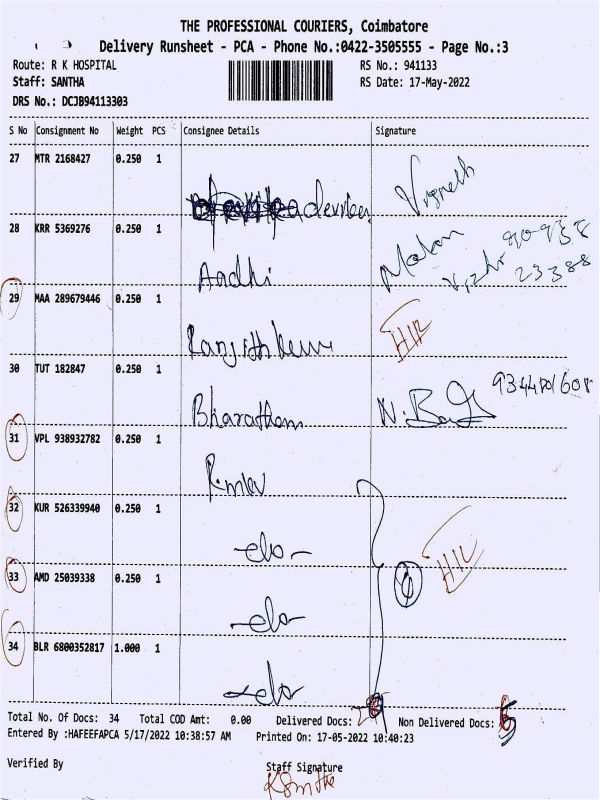 THE PROFESSIONAL COURIERS, Coimbatore
Delivery Runsheet - PCA - Phone No.:0422-3505555 - Page No.:3
Route: R K HOSPITAL RS No.: 941133
Staff: SANTHA RS Date: 17-May-2022
DRS No.: DCJB94113303
S No Consignment No Weight PCS Consignee Details Signature
27 MTR 2168427 0.250 1
Vignesh
28 KRR 5369276 0.250 1
Aadhi Mohan
29 MAA 289679446 0.250 1
30 TUT 182847 0.250 1
31 VPL 938932782 0.250 1
32 KUR 526339940 0.250 1
-do-
33 AMD 25039338 0.250 1
-do-
34 BLR 6800352817 1.000 1
-do-
Total No. Of Docs: 34 Total COD Amt: 0.00 Delivered Docs: Non Delivered Docs:
Entered By :HAFEEFAPCA 5/17/2022 10:38:57 AM Printed On: 17-05-2022 10:40:23
Verified By Staff Signature